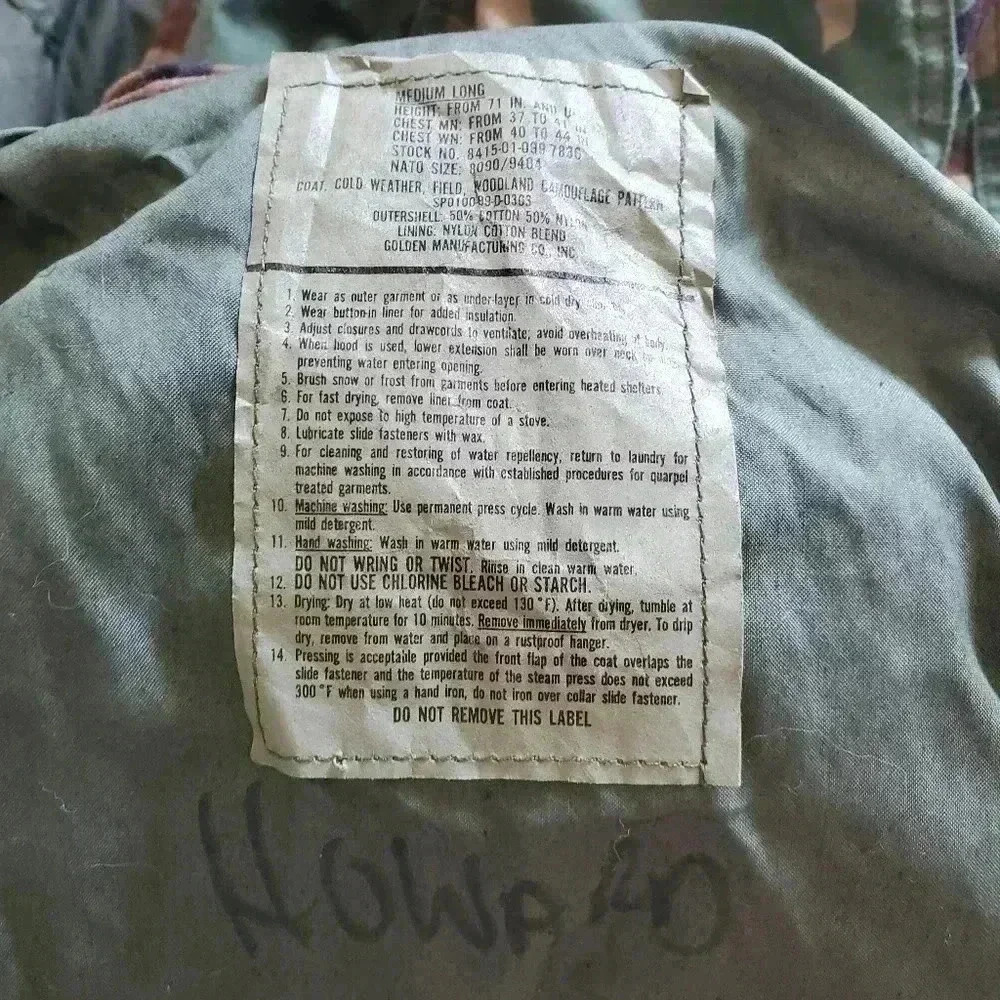 MEDIUM LONG
HEIGHT: FROM 71 IN. AND U
CHEST MN: FROM 37 TO 41 IN
CHEST WN: FROM 40 TO 44
STOCK NO. 8415-01-099-7836
NATO SIZE: 8090/9404
COAT, COLD WEATHER, FIELD, WOODLAND CAMOUFLAGE PATTERN
OUTERSHELL: 50% COTTON 50% NYLON
LINING: NYLON COTTON BLEND
GOLDEN MANUFACTURING CO., INC.
1. Wear as outer garment or as under-layer in cold dry
2. Wear button-in liner for added insulation.
3. Adjust closures and drawcords to ventilate; avoid overheating of body.
4. When hood is used, lower extension shall be worn over neck
preventing water entering opening.
5. Brush snow or frost from garments before entering heated shelters.
6. For fast drying, remove liner from coat.
7. Do not expose to high temperature of a stove.
8. Lubricate slide fasteners with wax.
9. For cleaning and restoring of water repellency, return to laundry for
machine washing in accordance with established procedures for quarpel
treated garments.
10. Machine washing: Use permanent press cycle. Wash in warm water using
mild detergent.
11. Hand washing: Wash in warm water using mild detergent.
DO NOT WRING OR TWIST. Rinse in clean warm water.
12. DO NOT USE CHLORINE BLEACH OR STARCH.
13. Drying: Dry at low heat (do not exceed 130°F). After drying, tumble at
room temperature for 10 minutes. Remove immediately from dryer. To drip
dry, remove from water and place on a rustproof hanger.
14. Pressing is acceptable provided the front flap of the coat overlaps the
slide fastener and the temperature of the steam press does not exceed
300°F when using a hand iron, do not iron over collar slide fastener.
DO NOT REMOVE THIS LABEL
HOWARD